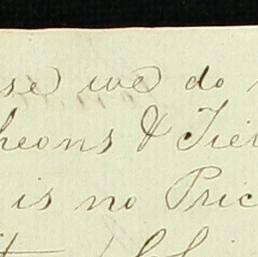 se we do
heons & Tie
is no Pric